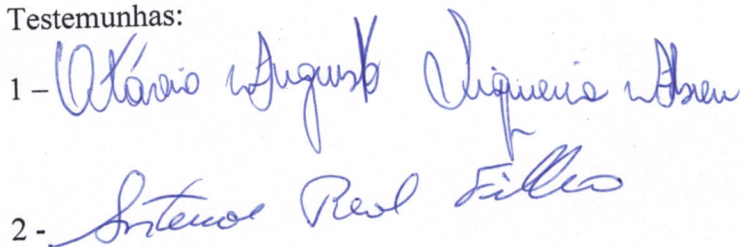 Testemunhas:
1 – Otávio Augusto Siqueira Abreu
2 - Antenor Real Filho